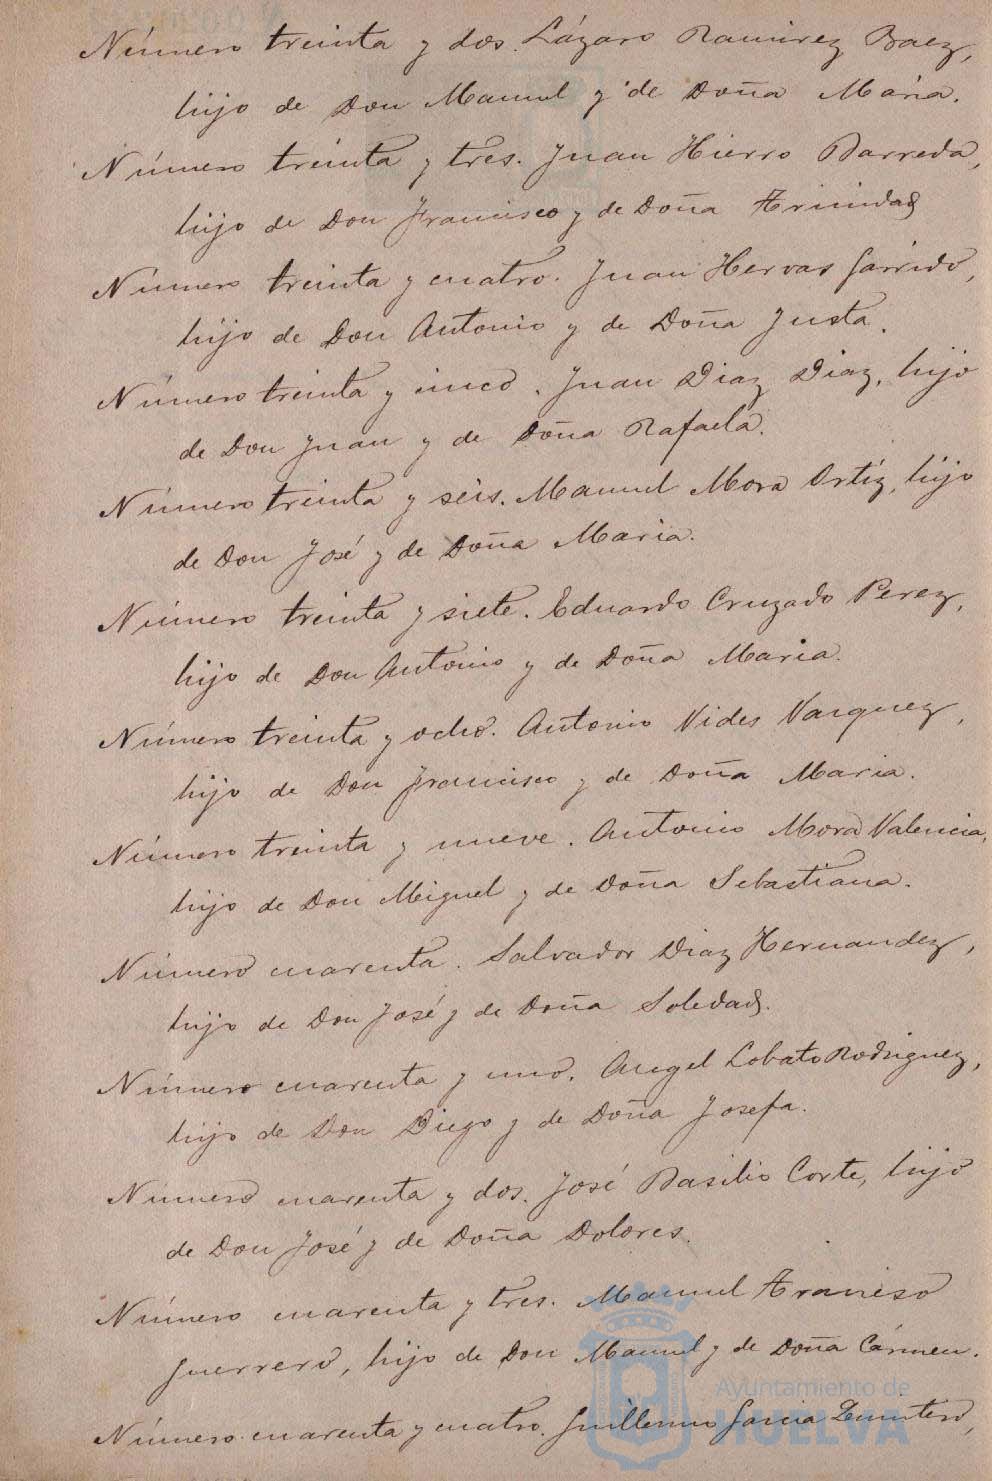 Número treinta y dos. Lázaro Ramirez Baez,
hijo de Don Manuel y de Doña Maria.
Número treinta y tres. Juan Hierro Barreda,
hijo de Don Francisco y de Doña Trinidad
Número treinta y cuatro. Juan Hervas Garrido,
hijo de Don Antonio y de Doña Justa.
Número treinta y cinco. Juan Diaz Diaz, hijo
de Don Juan y de Doña Rafaela.
Número treinta y seis. Manuel Mora Ortiz, hijo
de Don José y de Doña Maria.
Número treinta y siete. Eduardo Cruzado Perez,
hijo de Don Antonio y de Doña Maria.
Número treinta y ocho. Antonio Vides Vazquez,
hijo de Don Francisco y de Doña Maria.
Número treinta y nueve. Antonio Mora Valencia,
hijo de Don Miguel y de Doña Sebastiana.
Número cuarenta. Salvador Diaz Hernandez,
hijo de Don José y de Doña Soledad.
Número cuarenta y uno. Angel Lobato Rodriguez,
hijo de Don Diego y de Doña Josefa.
Número cuarenta y dos. José Basilio Corte, hijo
de Don José y de Doña Dolores.
Número cuarenta y tres. Manuel Travieso
Guerrero, hijo de Don Manuel y de Doña Cármen.
Número cuarenta y cuatro. Guillermo Garcia
Ayuntamiento de
HUELVA